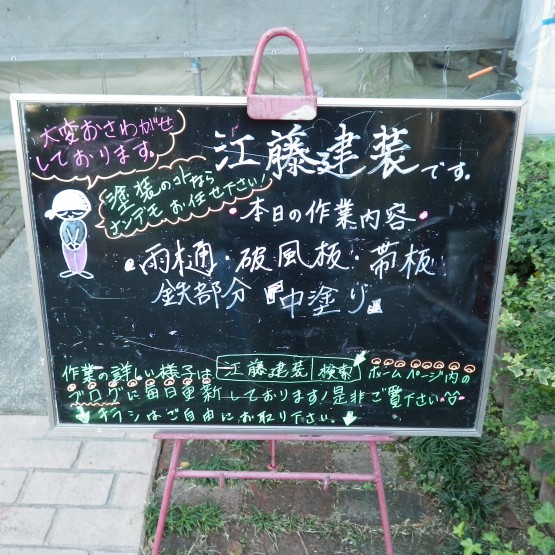 大変おさわがせ
しております。
江藤建装です。
塗装のコトなら
ナンデモお任せ下さい!
・本日の作業内容・
・雨樋・破風板・帯板
鉄部分『中塗り』
作業の詳しい様子は 江藤建装 検索 ホームページ内の
ブログに毎日更新しております!是非ご覧下さい
↓チラシはご自由にお取り下さい。↓